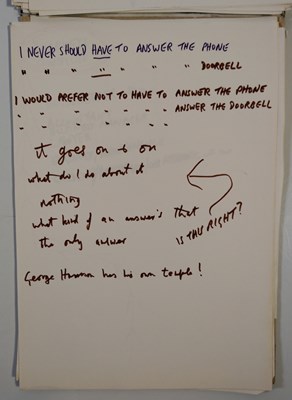 I NEVER SHOULD HAVE TO ANSWER THE PHONE
" " " " " " " DOORBELL
I WOULD PREFER NOT TO HAVE TO ANSWER THE PHONE
" " " " " " " ANSWER THE DOORBELL
" " " " " " "
it goes on & on
what do I do about it
nothing
what kind of an answer's that
the only answer
IS THIS RIGHT?
George Harrison has his own temple!